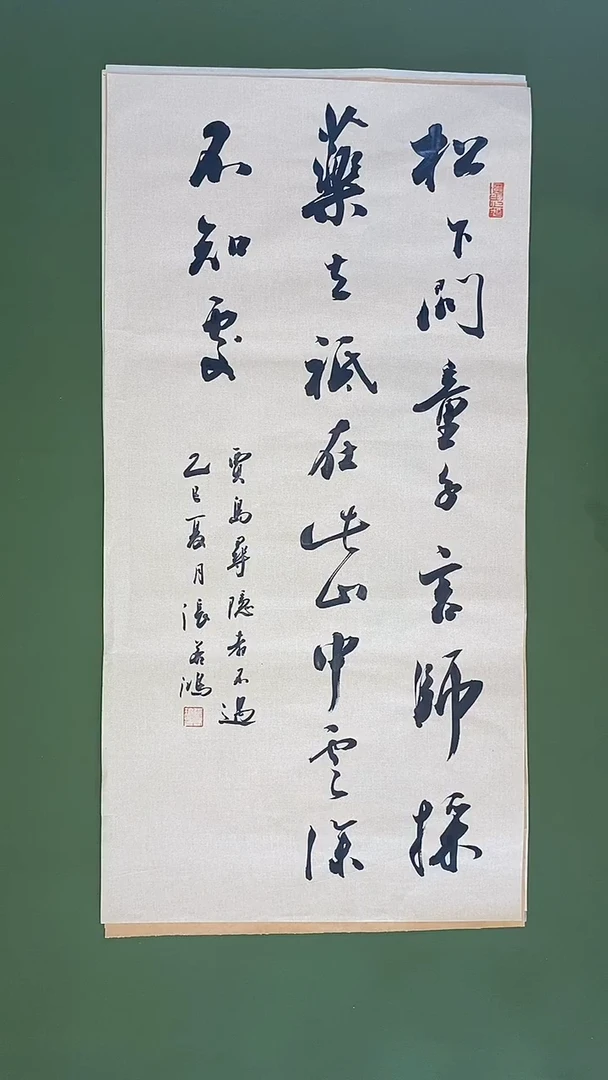 松下問童子言師採
藥去祇在此山中雲深
不知處
賈島尋隱者不遇
乙巳夏月張若鴻